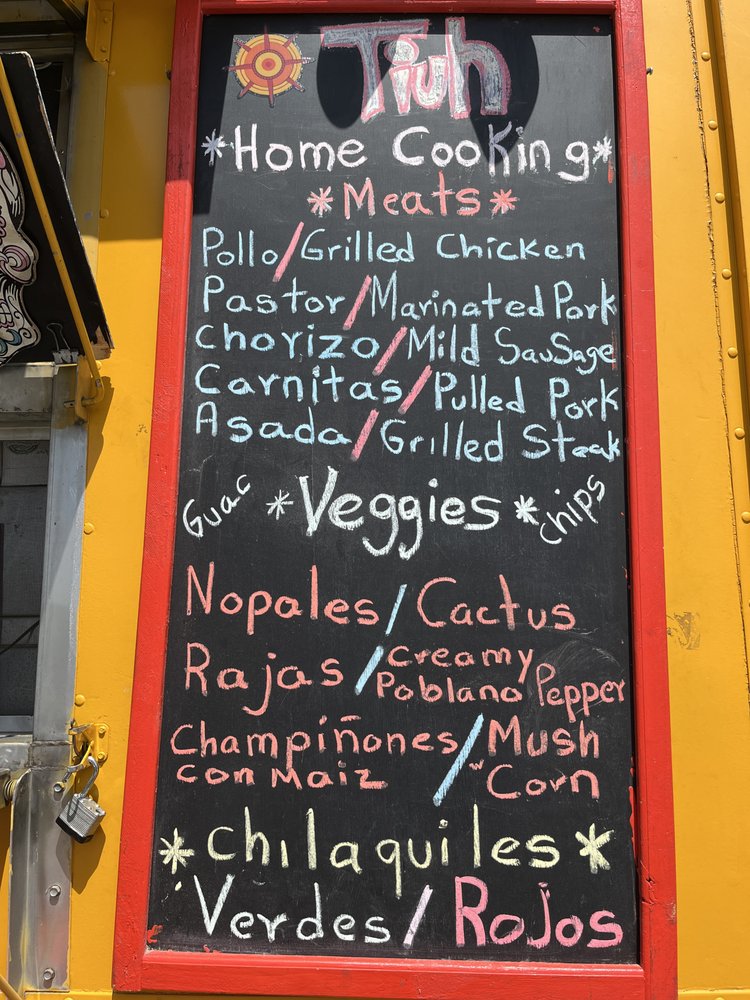 Tiuh
*Home Cooking*
*Meats*
Pollo/Grilled Chicken
Pastor/Marinated Pork
Chorizo/Mild Sausage
Carnitas/Pulled Pork
Asada/Grilled Steak
Guac *Veggies* Chips
Nopales/Cactus
Rajas/Creamy
Poblano Pepper
Champiñones/Mush
con Maiz / w Corn
*Chilaquiles*
Verdes/Rojos